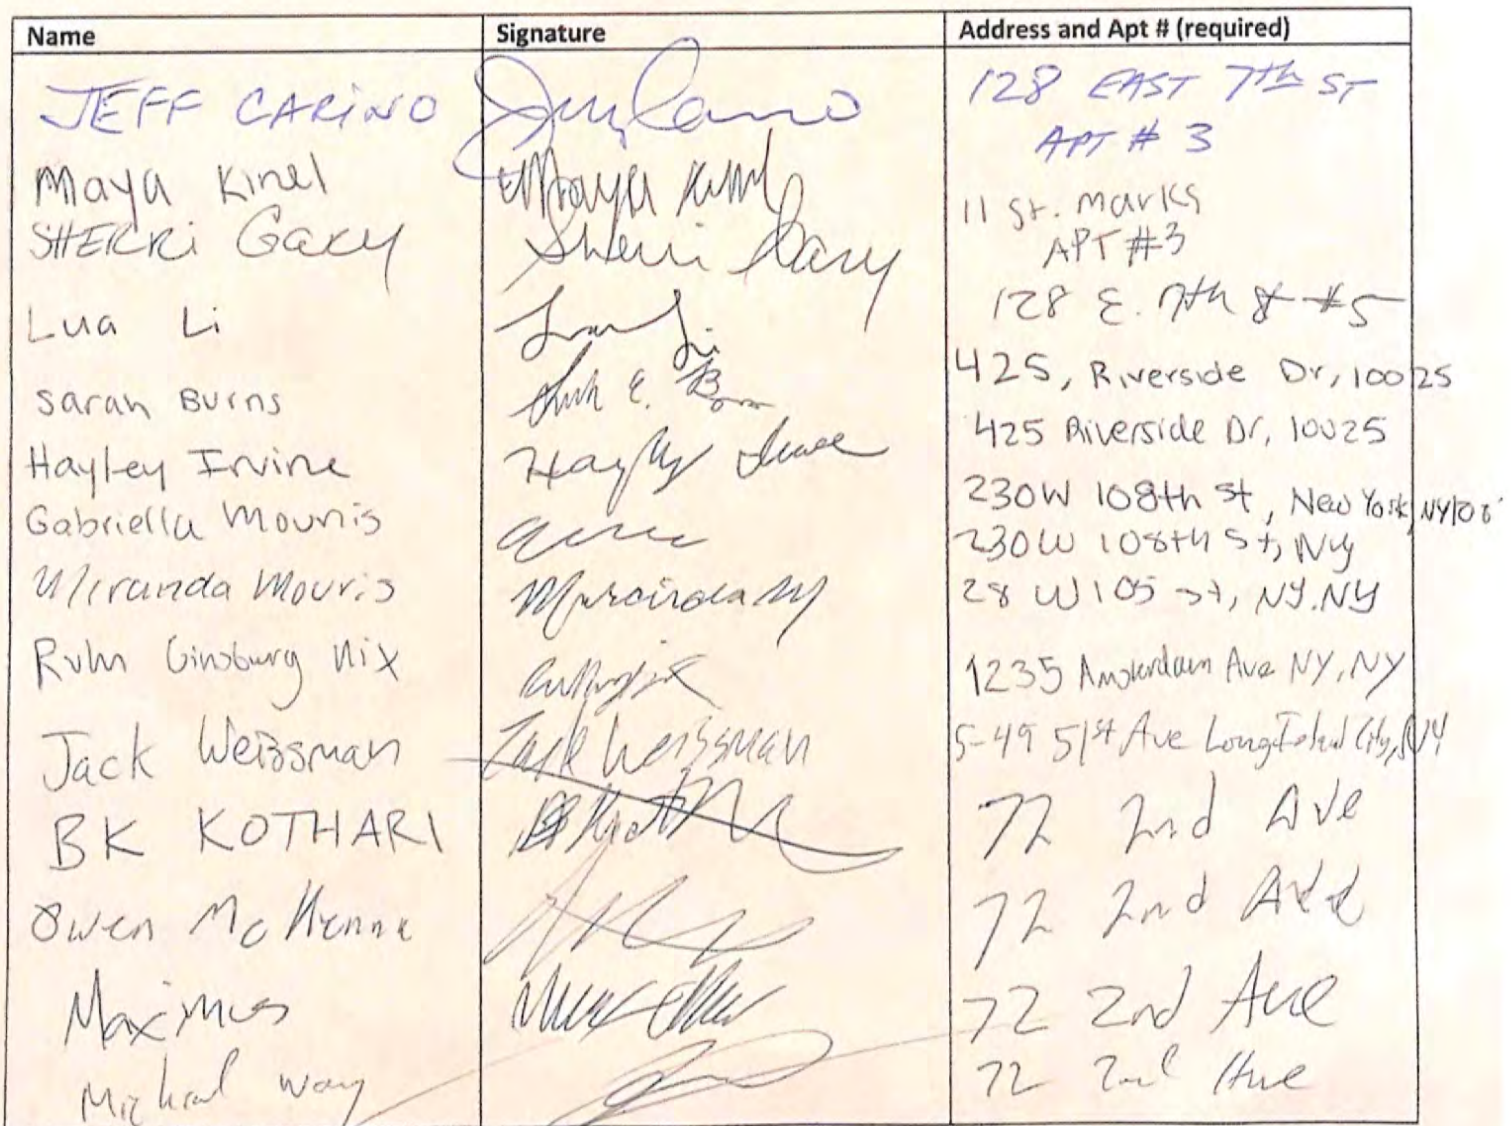 Name Signature Address and Apt # (required)
JEFF CARINO 128 EAST 7th ST
APT # 3
Maya Kinel Maya 11 St. Marks
APT #3
SHERRi Gary Sherri Gary
128 E. 7th St #5
Lua Li Lua Li
425, Riverside Dr, 10025
Sarah Burns
425 Riverside Dr, 10025
Hayley Irvine Hayley Irvine
230W 108th St, New York, NY
Gabriella Mouris
230W 108th St, NY
Miranda Mouris Miranda M 28 W 105 St, NY.NY
Ruhn Ginsburg Nix 1235 Amsterdam Ave NY, NY
Jack Weissman Jack Weissman 5-49 51st Ave Long Island City, NY
BK KOTHARI 72 2nd Ave
Owen McKenna 72 2nd Ave
Maximus 72 2nd Ave
Michael Way 72 2nd Ave